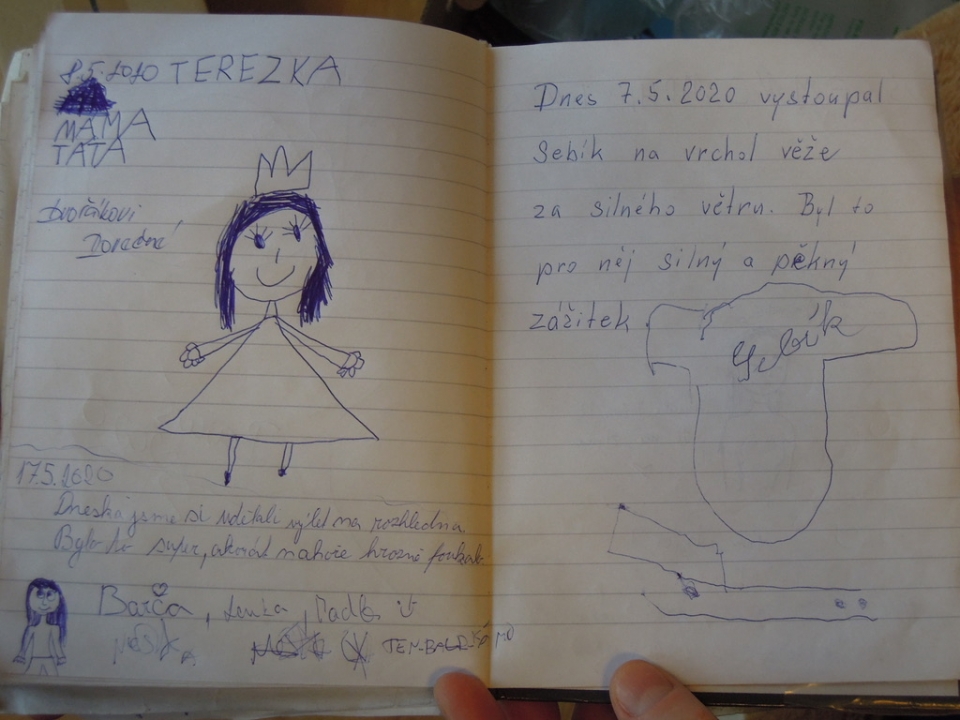 8.5.2020 TEREZKA
MAMA
TATA
Dvořákovi
17.5.2020
Dneska jsme si udělali výlet na rozhlednu.
Bylo to super, akorát nahoře hrozně foukalo.
Barča, Lenka, Madla
Dnes 7.5.2020 vystoupal
Sebík na vrchol věže
za silného větru. Byl to
pro něj silný a pěkný
zážitek.
Sebík